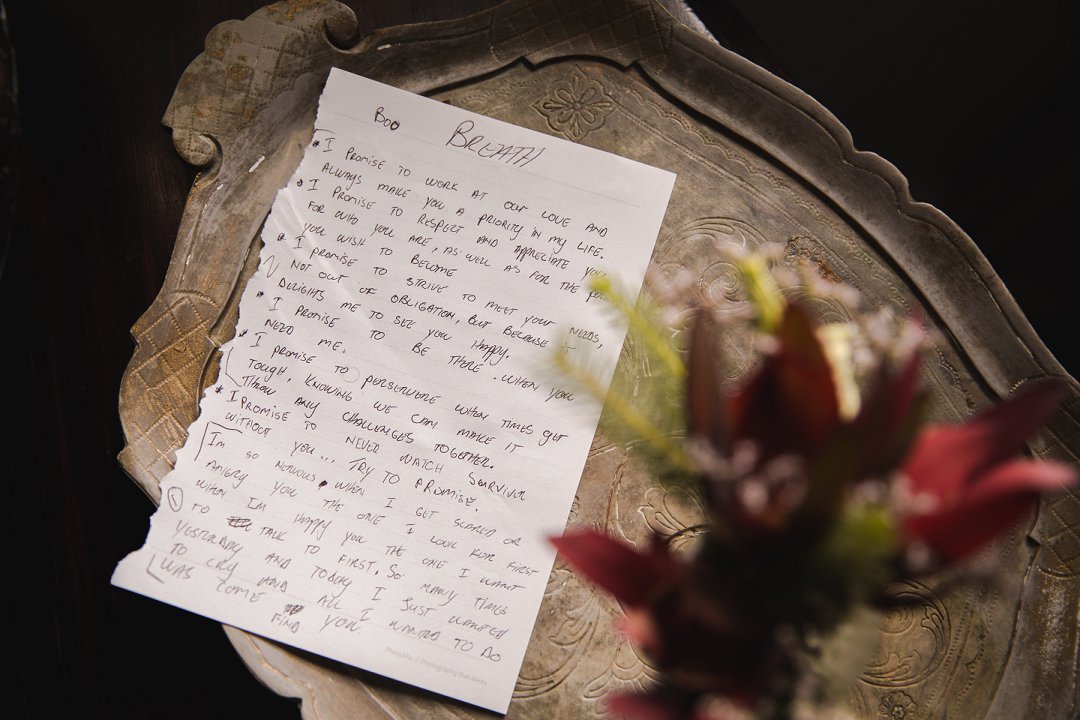 Boo BREATH
* I PROMISE TO WORK AT OUR LOVE AND
ALWAYS MAKE YOU A PRIORITY IN MY LIFE.
* I PROMISE TO RESPECT AND APPRECIATE YOU
FOR WHO YOU ARE, AS WELL AS FOR THE
YOU WISH TO BECOME
* I PROMISE TO STRIVE TO MEET YOUR NEEDS,
NOT OUT OF OBLIGATION, BUT BECAUSE IT
DELIGHTS ME TO SEE YOU HAPPY.
* I PROMISE TO BE THERE WHEN YOU
NEED ME.
* I PROMISE TO PERSERVERE WHEN TIMES GET
TOUGH, KNOWING WE CAN MAKE IT
THROW ANY CHALLENGES TOGETHER.
* I PROMISE TO NEVER WATCH SURVIVOR
WITHOUT YOU... TRY TO PROMISE.
I'm SO NERVOUS, WHEN I GET SCARED OR
ANGRY YOU THE ONE I LOOK FOR FIRST
WHEN I'M HAPPY YOU THE ONE I WANT
TO TALK TO FIRST. SO MANY TIMES
YESTERDAY AND TODAY I JUST WANTED
TO CRY AND ALL I WANTED TO DO
WAS COME FIND YOU
Photography that dares